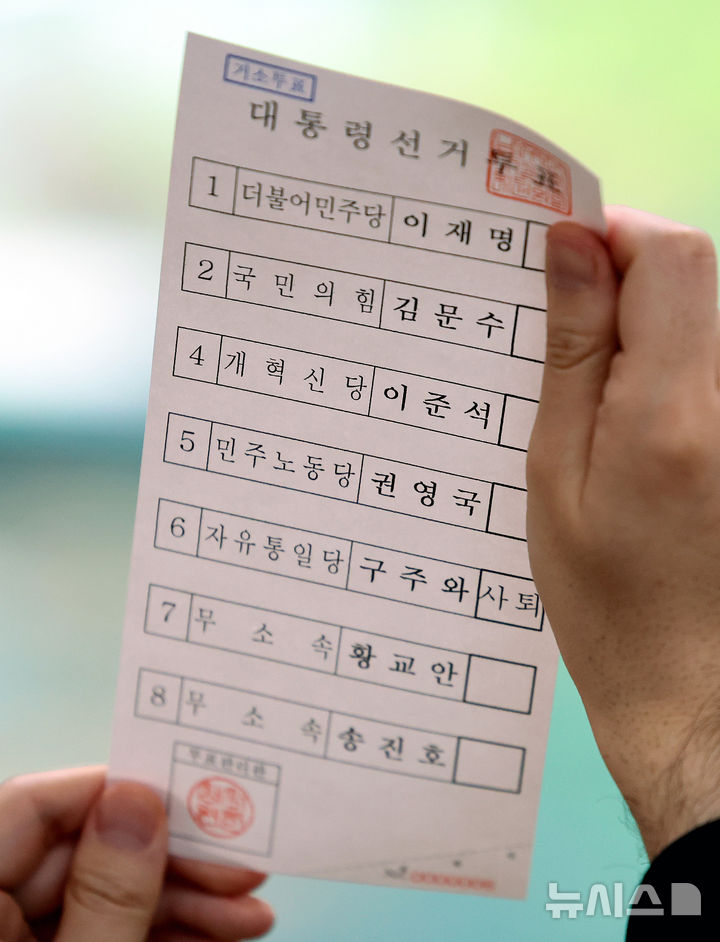 거소투표
대통령선거 투표
1 더불어민주당 이재명
2 국민의힘 김문수
4 개혁신당 이준석
5 민주노동당 권영국
6 자유통일당 구주와 사퇴
7 무소속 황교안
8 무소속 송진호
투표관리관
뉴시스